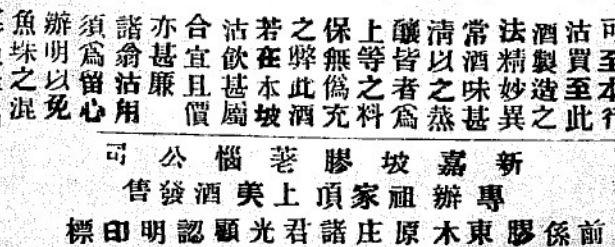 可至本行
沽買至此
酒製造之
法精妙異
常酒味甚
淸以之蒸
釀皆者爲
上等之料
保無僞充
之弊此酒
若在本坡
沽飲甚屬
合宜且價
亦甚廉
諸翁沽用
須爲留心
辦明以免
魚珠之混
新嘉坡膠荖惱公司
專辦祖家頂上美酒發售
前係膠東木原庄諸君光顧認明印標